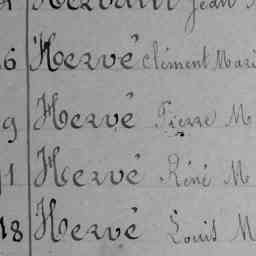 Jean
6 Hervé Clément Mari
9 Hervé Pierre M
1 Hervé Réné M
18 Hervé Louis M